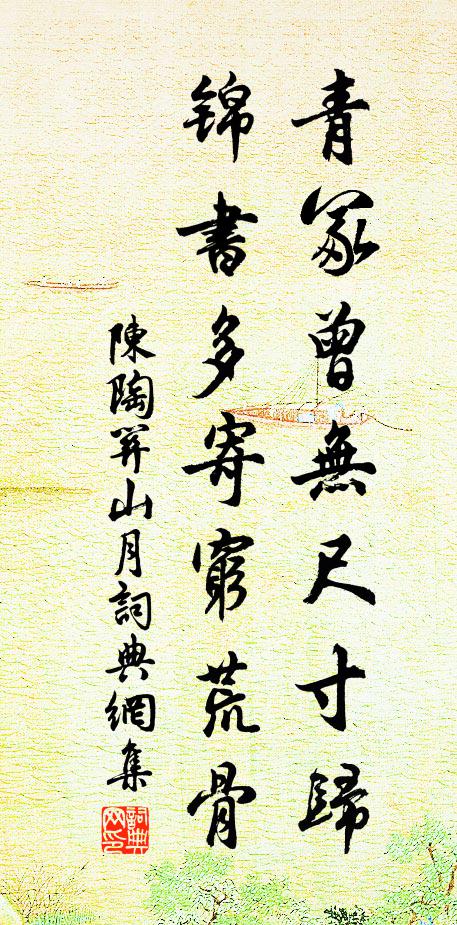 青冢曾無尺寸歸
錦書多寄窮荒骨
陳陶關山月詞典網集
詞典
网印